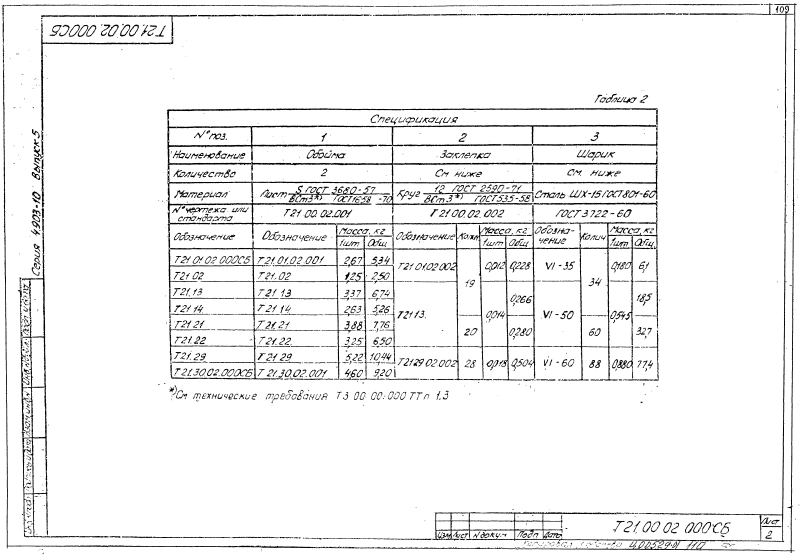 109
Т21.00.02.000СБ
Серия 4.903-10 Выпуск 5
Таблица 2
Спецификация
№ поз. 1 2 3
Наименование Обойма Заклепка Шарик
Количество 2 См ниже См. ниже
Материал Лист S ГОСТ 3680-57 / ВСт3*) ГОСТ1658-70 Круг 12 ГОСТ 2590-71 / ВСт3*) ГОСТ535-58 Сталь ШХ-15 ГОСТ801-60
№ чертежа или стандарта Т21 00.02.001 Т21 00.02.002 ГОСТ 3722-60
Обозначение Обозначение Масса, кг 1шт Общ. Обозначение Колич Масса, кг 1шт Общ. Обозначение Колич Масса, кг 1шт Общ.
Т21.01.02.000СБ Т21.01.02.001 2,67 5,34 Т21.01.02.002 19 0,012 0,228 VI-35 34 0,180 6,1
Т21.02 Т21.02 1,25 2,50
Т21.13 Т21 13 3,37 6,74 Т21 13. 0,014 0,266 VI-50 0,545 18,5
Т21 14 Т21 14 2,63 5,26
Т21 21 Т21.21 3,88 7,76 20 0,280 60 32,7
Т21.22 Т21.22. 3,25 6,50
Т21.29 Т21 29 5,22 10,44 Т21 29 02.002 28 0,018 0,504 VI-60 88 0,880 77,4
Т21.30.02.000СБ Т21.30.02.001 4,60 9,20
*) См технические требования Т3 00 00.000 ТТ п 1.3
Изм Лист N докум Подп Дата
Т21.00 02 000СБ
Лист
2